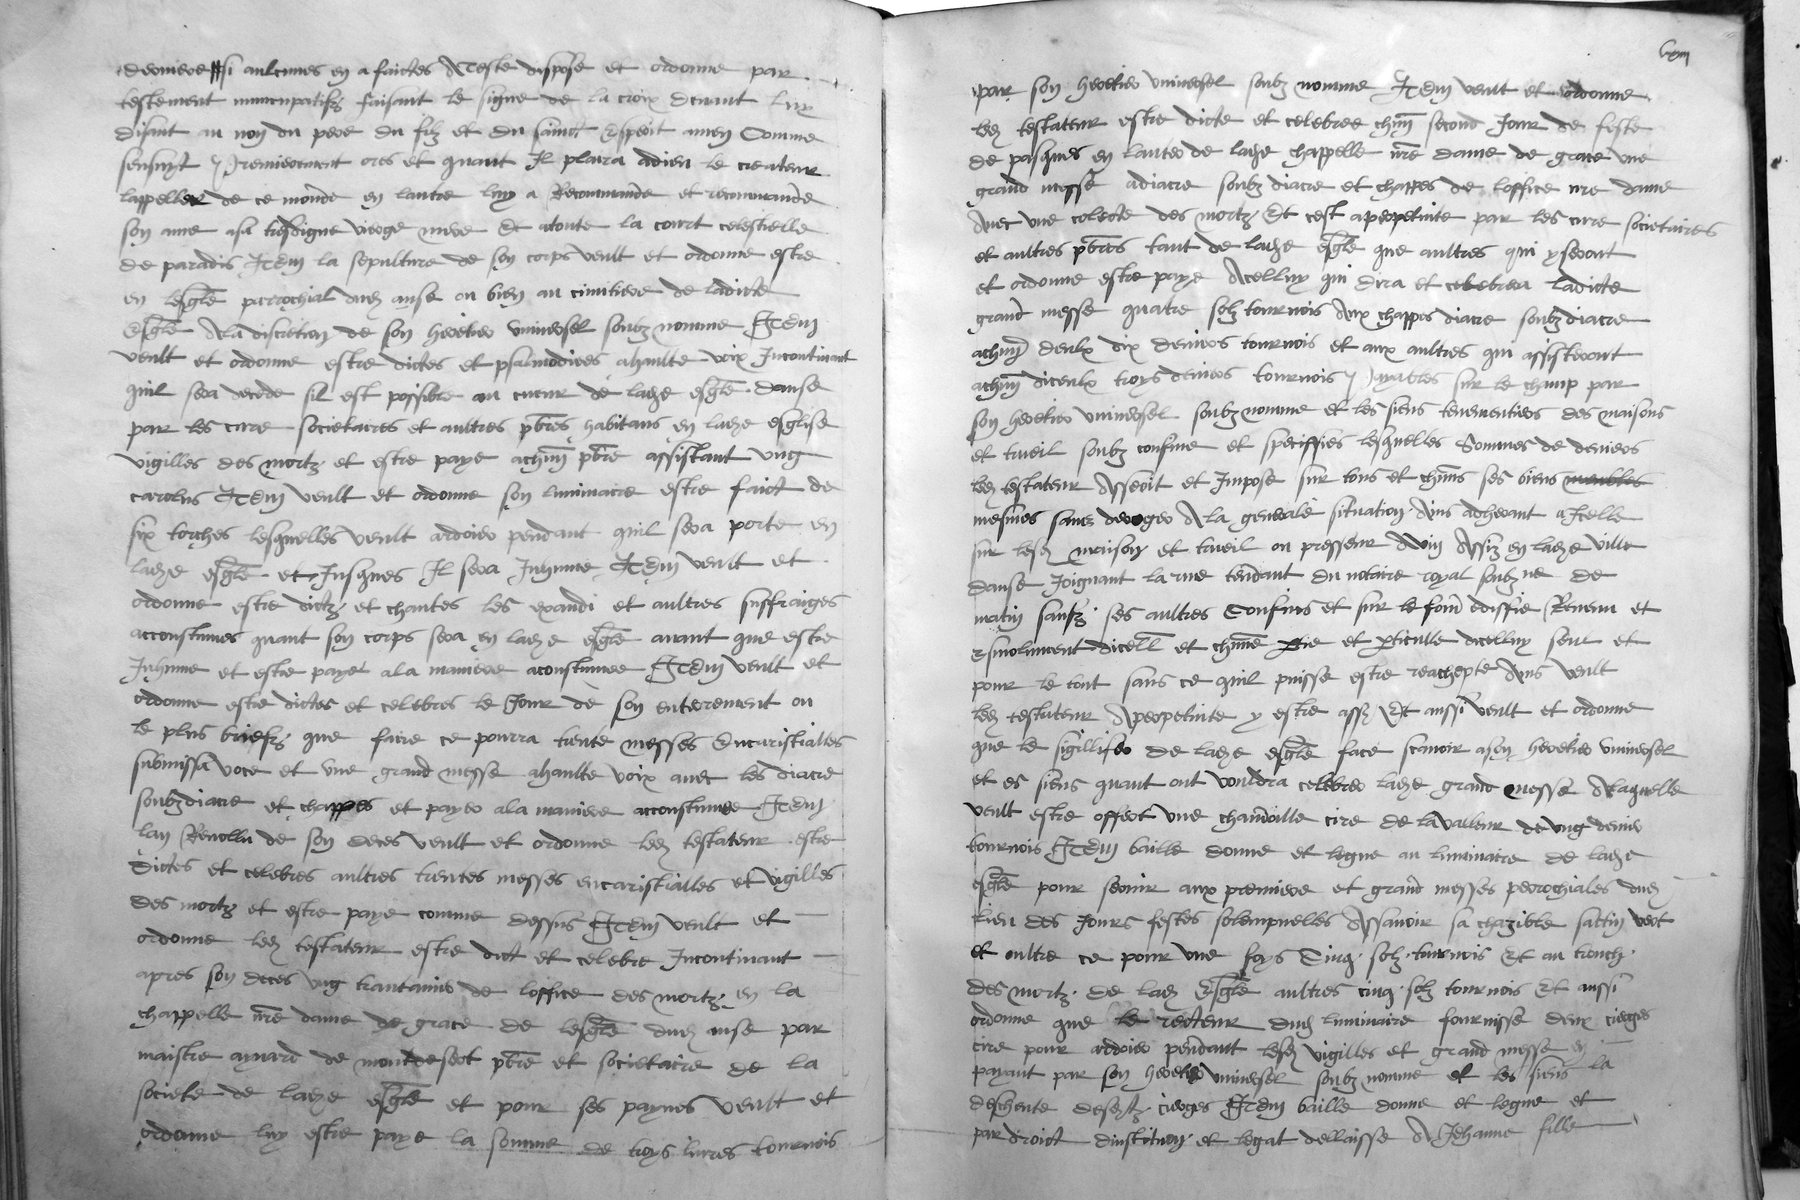 derniere si aulcunes en a faictes A Teste dispose et ordonne par
testement nuncupatifz faisant le signe de la croix devant luy
disant au nom du pere du filz et du sainct esperit amen Comme
sensuyt Premierement ores et quant Il plaira a dieu le createur
lappeller de ce monde en lautre luy a Recommande et recommande
son ame a sa tresdigne vierge mere Et a toute la court celestielle
de paradis Item la sepulture de son corps veult et ordonne estre
en lesgle parrochial dud anse ou bien au cimitiere de ladicte
Esgle A la discretion de son heretier universel soubz nomme Item
veult et ordonne estre dictes et psalmodiees a haulte voix Incontinant
quil sera decede sil est possible au cueur de ladze esgle danse
par les cure societaires et aultres pbres habitans en ladze esglise
vigilles des mortz et estre paye a chun pbre assistant ung
carolus Item veult et ordonne son luminaire estre faict de
six torches lesquelles veult ardoire pendant quil sera porte en
ladze esgle et Jusques Il sera Inhume Item veult et
ordonne estre dictz et chantes les exaudi et aultres suffraiges
accoustumes quant son corps sera en ladze esgle avant que estre
Inhume et estre paye a la maniere acoustumee Item veult et
ordonne estre dictes et celebres le Jour de son enterrement ou
le plus briefz que faire ce pourra trente messes Eucaristialles
submissa voce et une grand messe a haulte voix avec les diacre
soubzdiacre et chappes et payer a la maniere accoustumee Item
lan Revollu de son deces veult et ordonne led testateur estre
dictes et celebres aultres trentes messes eucaristialles et vigilles
des mortz et estre paye comme dessus Item veult et
ordonne led testateur estre dict et celebre Incontinant
apres son deces ung trantanier de loffice des mortz en la
chappelle nre dame de grace de lesgle dud anse par
maistre aymard de pbre et societaire de la
societe de ladze esgle et pour ses paynes veult et
ordonne luy estre paye la somme de troys livres tournois
par son heretier universel soubz nomme Item veult et ordonne
led testateur estre dicte et celebree chun second Jour de feste
de pasques en lauter de ladze chappelle nre dame de grace une
grand messe a diacre soubz diacre et chappes de loffice nre dame
Avec une colecte des mortz Et cest a perpetuite par les cure societaires
et aultres pbres tant de ladze esgle que aultres qui y seront
et ordonne estre paye A celluy qui dira et celebrera ladicte
grand messe quatre solz tournois Aux chappes diacre soubz diacre
a chun deulx dix deniers tournois et aux aultres qui assisteront
a chun diceulx troys deniers tournois Payables sur le champ par
son heretier universel soubz nomme et les siens tenementiers des maisons
et trueil soubz confine et speciffies lesquelles Sommes de deniers
led testateur Asseoit et Impose sur tous et chuns ses biens meubles
mesmes sans deroger A la generale situation Ains adherant a Icelle
sur lesd maison et trueil ou presseur A vin Assiz en ladze ville
danse Joignant la rue tendant du notaire royal soubzne de
matin saufz ses aultres Confins et sur le fond ediffie Revenu et
Esmolument dicell et chune ptie et pticulle dicelluy seul et
pour le tout sans ce quil puisse estre reachepte Ains veult
led testateur A perpetuite y estre assz Et aussi veult et ordonne
que le sigillifer de ladze esgle face scavoir a son heretier universel
et es siens quant ont vouldra celebrer ladze grand messe A laquelle
veult estre offert une chandoille cire de la valleur de ung denier
tournois Item baille donne et legue au luminaire de ladze
esgle pour servir aux premiere et grand messes parrochiales dud
lieu des Jours festes solempnelles Assavoir sa chazible sattin vert
et oultre ce pour une foys Cinq solz tournois Et au tronch
des mortz de lad Esgle aultres cinq solz tournois Et aussi
ordonne que le recteur dud luminaire fournisse deux cierges
cire pour ardoire pendant lesd vigilles et grand messe en
payant par son heretier universel soubz nomme et les siens la
deschente desdtz cierges Item baille donne et legue et
par droict dinstitution et legat dellaisse A Jehanne fille